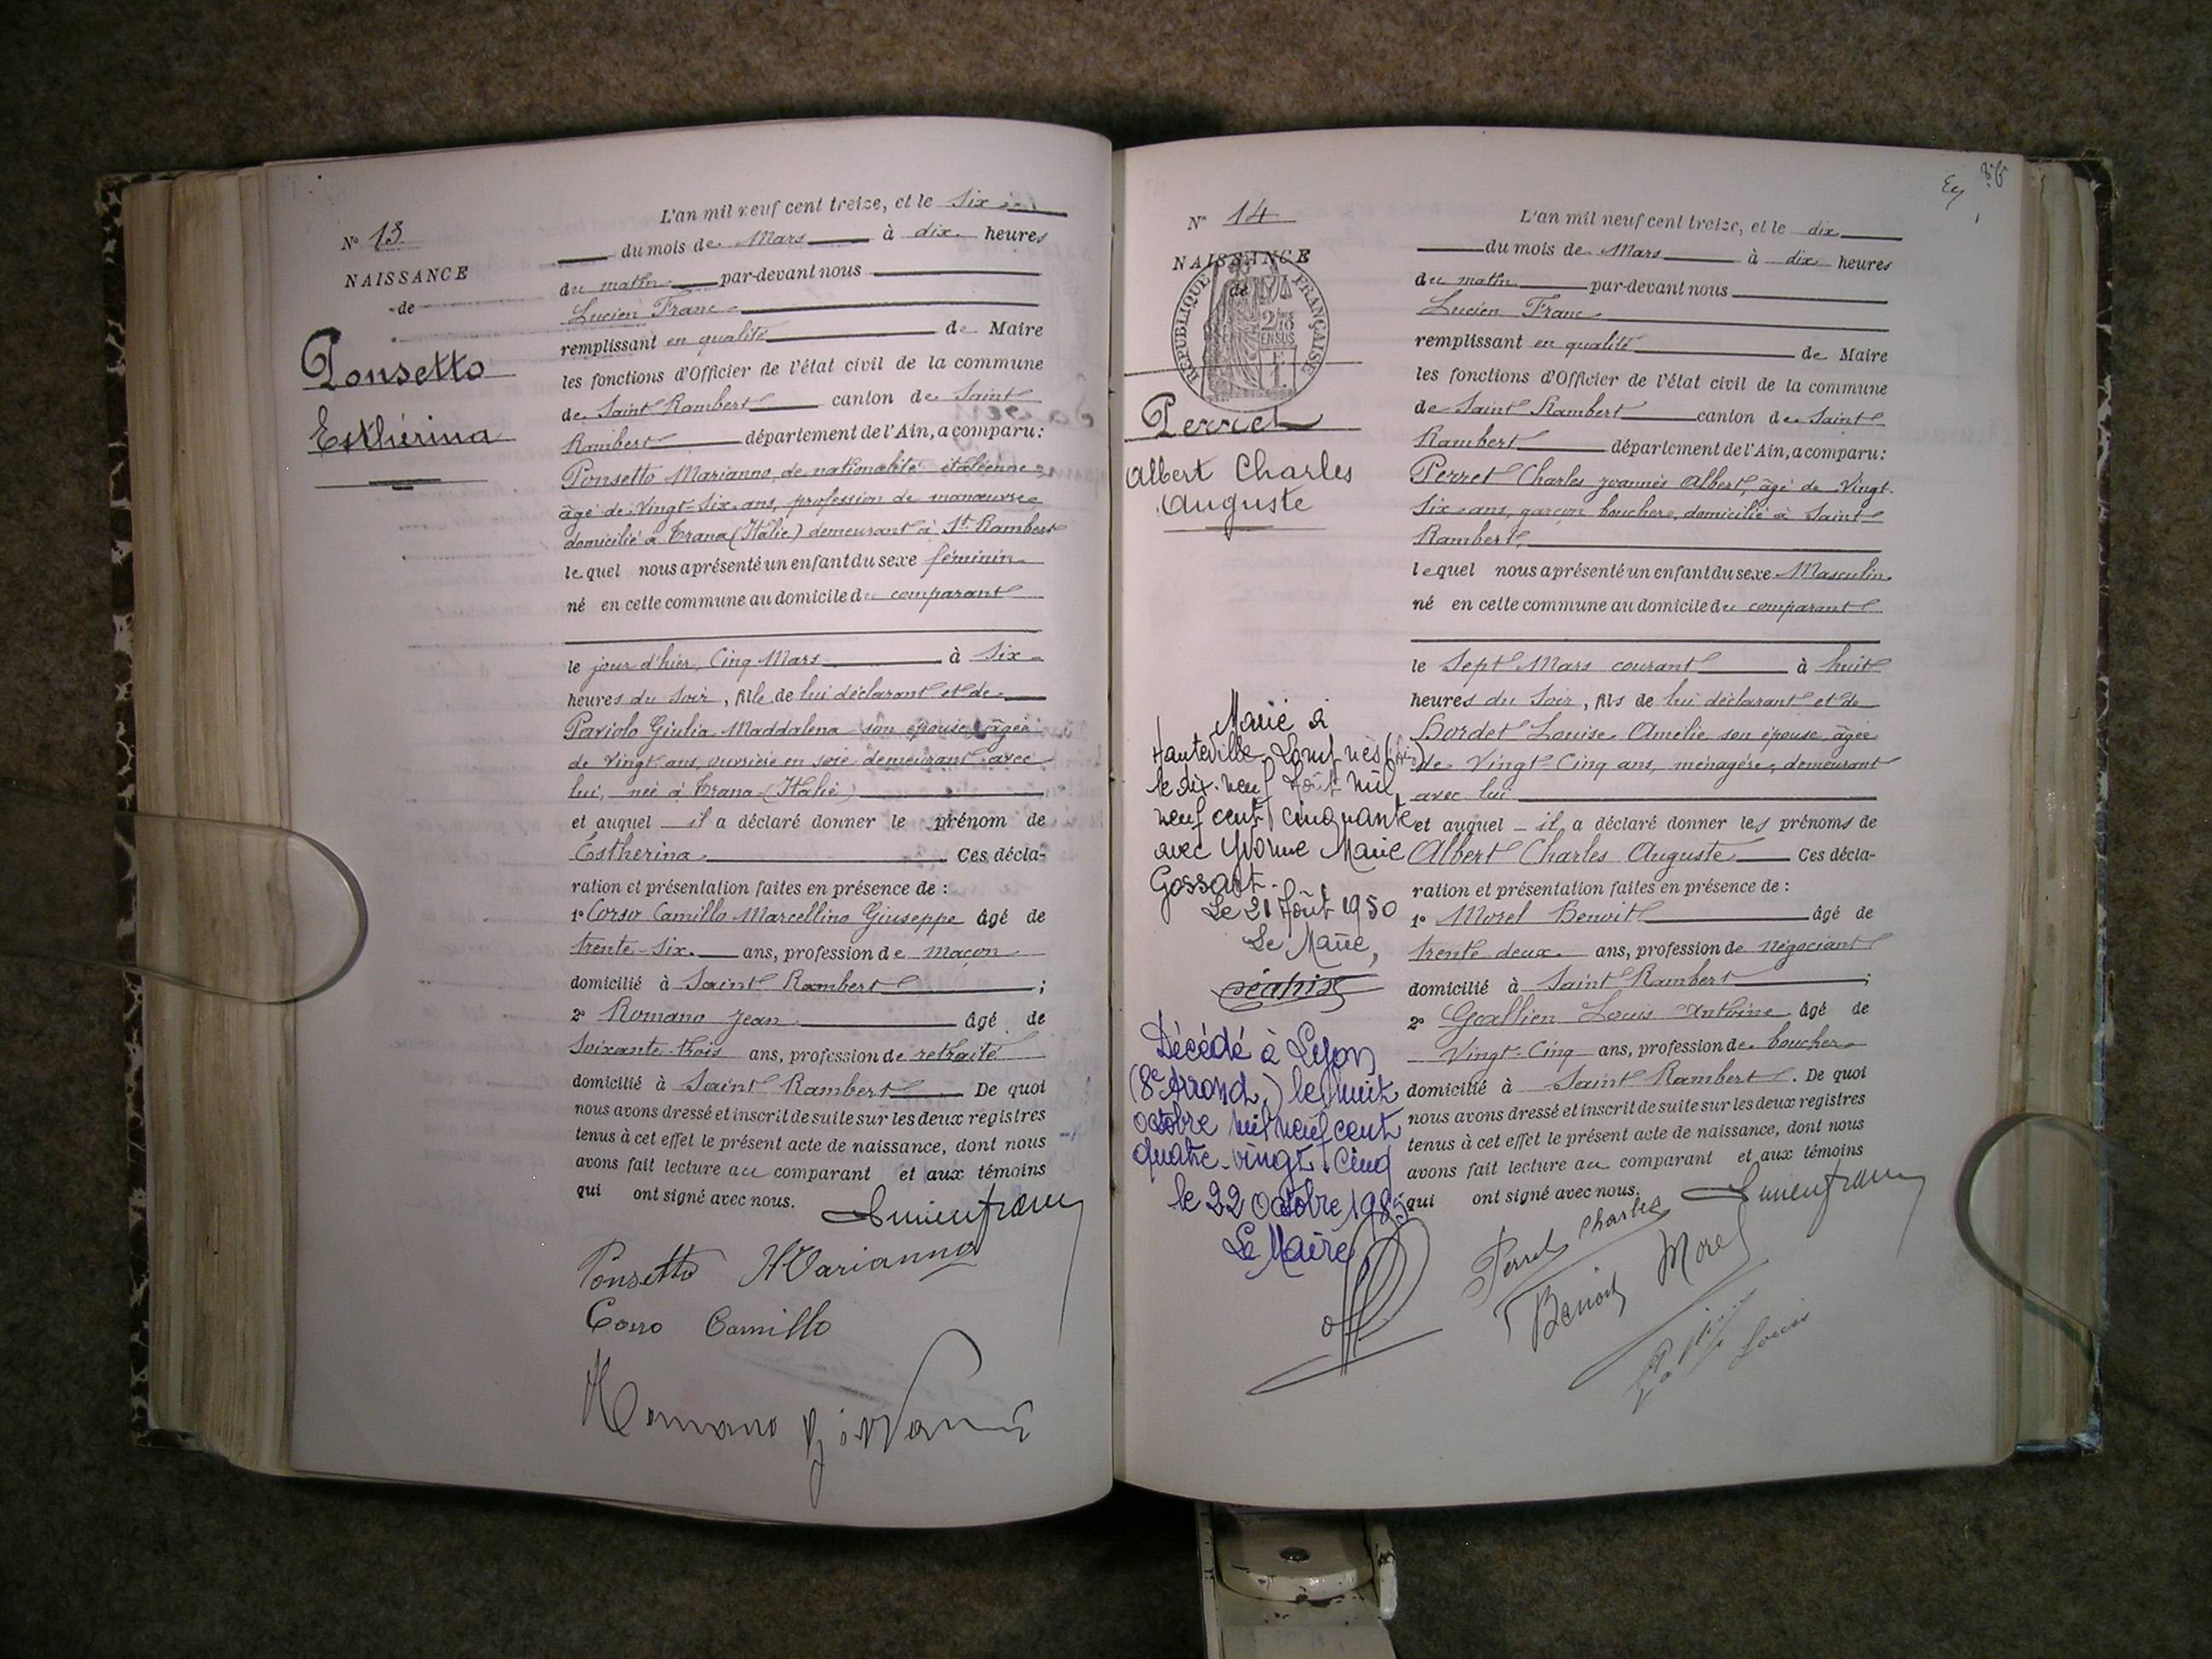 L'an mil neuf cent treize, et le Six
N° 13
du mois de Mars à dix heures
NAISSANCE
de
du matin par-devant nous
Lucien Franc
remplissant en qualité de Maire
Ponsetto
Esthérina
les fonctions d'Officier de l'état civil de la commune
de Saint Rambert canton de Saint
Rambert département de l'Ain, a comparu:
Ponsetto Marianno, de nationalité italienne
âgé de Vingt-Six ans, profession de manœuvre
domicilié à Trana (Italie) demeurant à St Rambert
lequel nous a présenté un enfant du sexe féminin
né en cette commune au domicile du comparant
le jour d'hier, Cinq Mars à Six
heures du Soir, fille de lui déclarant et de
Paviolo Giulia Maddalena son épouse âgée
de Vingt ans, ouvrière en soie demeurant avec
lui, née à Trana (Italie)
et auquel il a déclaré donner le prénom de
Estherina Ces décla-
ration et présentation faites en présence de :
1° Corso Camillo Marcellino Giuseppe âgé de
trente-six ans, profession de maçon
domicilié à Saint Rambert ;
2° Romano Jean âgé de
Soixante-trois ans, profession de retraité
domicilié à Saint Rambert De quoi
nous avons dressé et inscrit de suite sur les deux registres
tenus à cet effet le présent acte de naissance, dont nous
avons fait lecture au comparant et aux témoins
qui ont signé avec nous.
Lucien Franc
Ponsetto Marianno
Corso Camillo
Romano Giovanni
N° 14
NAISSANCE
de
RÉPUBLIQUE FRANÇAISE
2/10
EN SUS
Perret
Albert Charles
Auguste
Marié à
Hauteville-Lompnès (Ain)
le dix-neuf Août mil
neuf cent cinquante
avec Yvonne Marie
Gossart.
Le 21 Août 1950
Le Maire,
Décédé à Lyon
(8e Arrond.) le huit
octobre mil neuf cent
quatre-vingt-cinq
le 22 Octobre 1985
Le Maire
L'an mil neuf cent treize, et le dix
du mois de Mars à dix heures
du matin par-devant nous
Lucien Franc
remplissant en qualité de Maire
les fonctions d'Officier de l'état civil de la commune
de Saint Rambert canton de Saint
Rambert département de l'Ain, a comparu:
Perret Charles Joannès Albert, âgé de Vingt
Six ans, garçon boucher, domicilié à Saint
Rambert,
lequel nous a présenté un enfant du sexe Masculin
né en cette commune au domicile du comparant
le Sept Mars courant à huit
heures du Soir, fils de lui déclarant et de
Bordet Louise Amélie son épouse âgée
de Vingt-Cinq ans, ménagère, demeurant
avec lui
et auquel il a déclaré donner les prénoms de
Albert Charles Auguste Ces décla-
ration et présentation faites en présence de :
1° Morel Benoit âgé de
trente deux ans, profession de négociant
domicilié à Saint Rambert ;
2° Gallien Louis Antoine âgé de
Vingt-Cinq ans, profession de boucher
domicilié à Saint Rambert. De quoi
nous avons dressé et inscrit de suite sur les deux registres
tenus à cet effet le présent acte de naissance, dont nous
avons fait lecture au comparant et aux témoins
qui ont signé avec nous.
Lucien Franc
Perret Charles
Benoit Morel
Louis